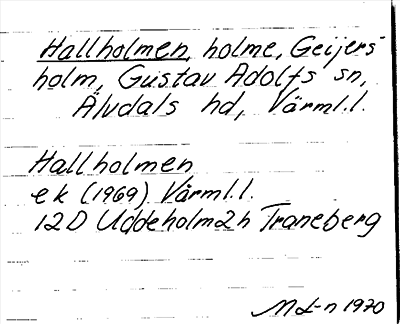 Hallholmen, holme, Geijers-
holm, Gustav Adolfs sn,
Älvdals hd, Värml.l.
Hallholmen
ek (1969) Värml.l.
12D Uddeholm2h Traneberg
ML-n 1970